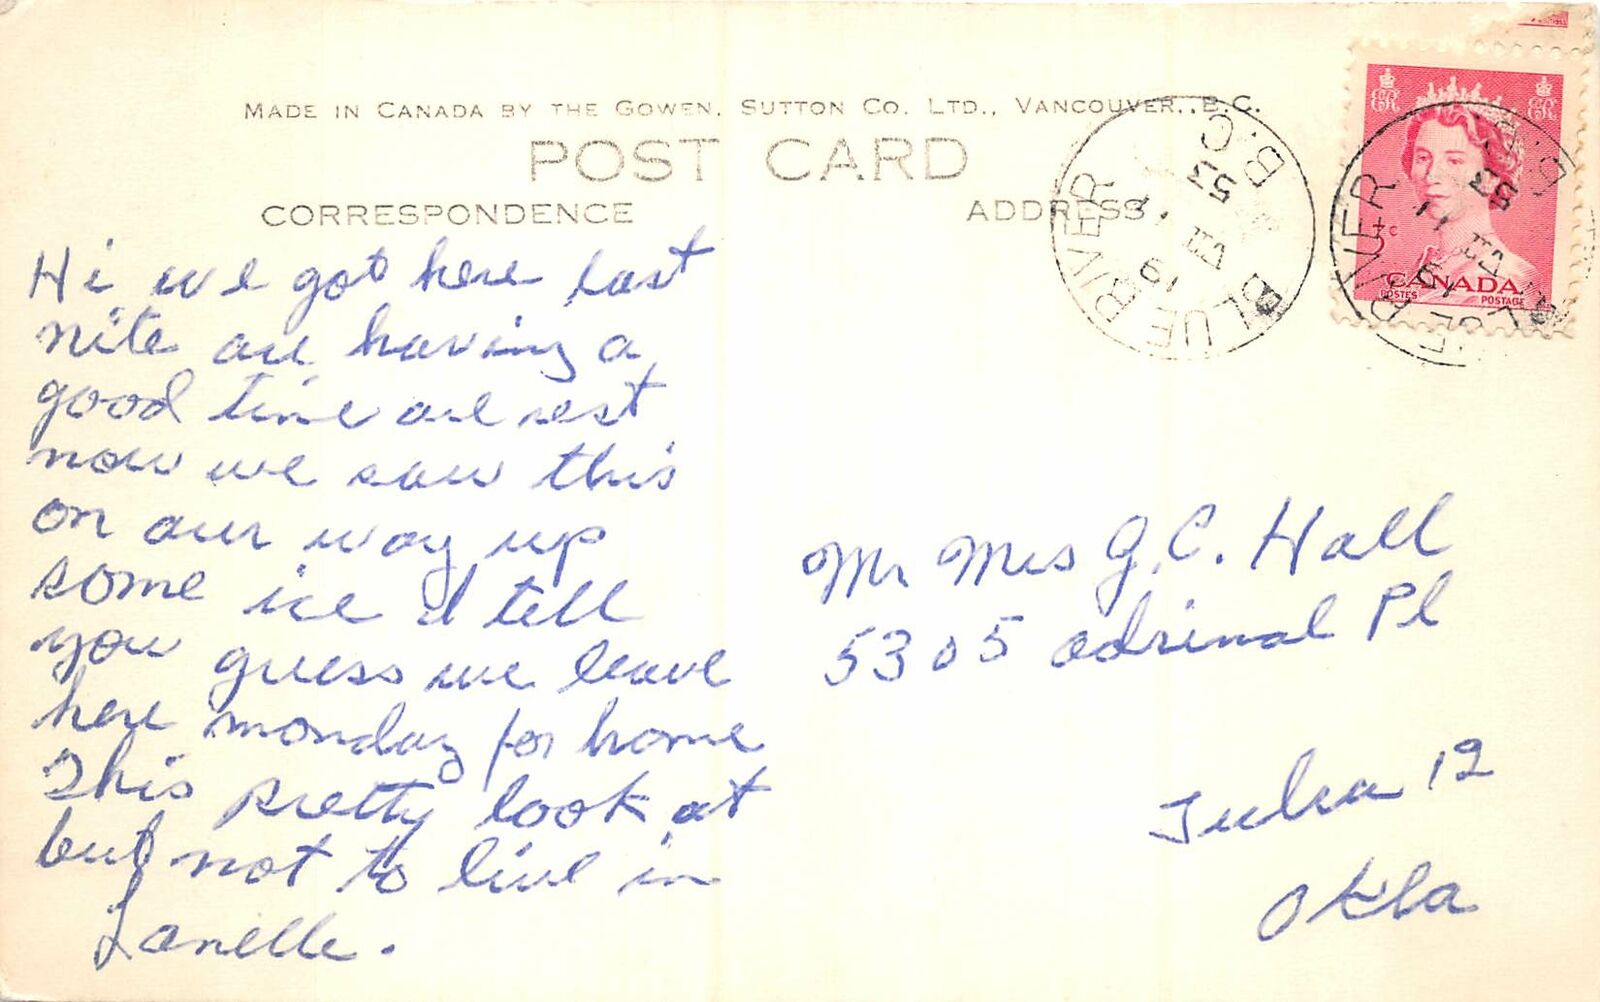 MADE IN CANADA BY THE GOWEN, SUTTON CO. LTD., VANCOUVER, B.C.
POST CARD
CORRESPONDENCE
ADDRESS
BLUE RIVER
B.C.
19
VII
53
CANADA
POSTES POSTAGE
Hi we got here last
nite are having a
good time are rest
now we saw this
on our way up
some ice I tell
you guess we leave
here monday for home
This pretty look at
but not to live in
Lanelle.
Mr Mrs G. C. Hall
5305 Pl
12
Okla